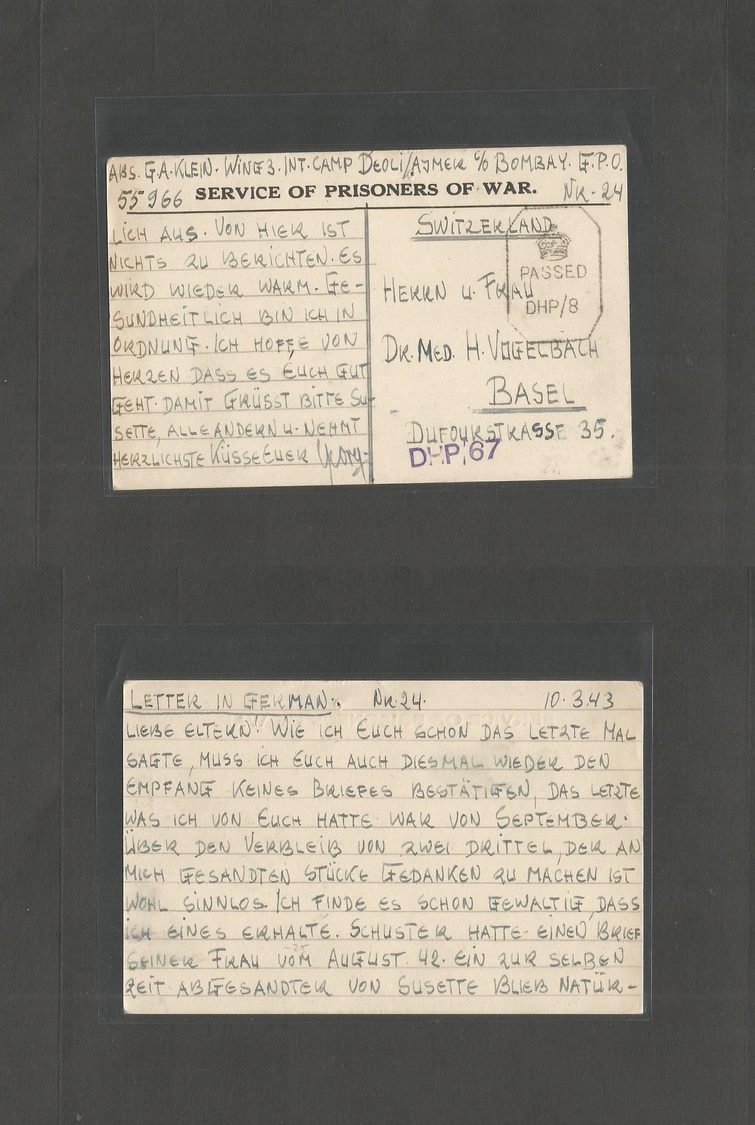 ABS. G.A. KLEIN. WING 3. INT. CAMP DEOLI/AJMER c/o BOMBAY. G.P.O.
55966 SERVICE OF PRISONERS OF WAR. NR. 24
LICH AUS. VON HIER IST
NICHTS ZU BERICHTEN. ES
WIRD WIEDER WARM. GE-
SUNDHEITLICH BIN ICH IN
ORDNUNG. ICH HOFFE VON
HERZEN DASS ES EUCH GUT
GEHT. DAMIT GRÜSST BITTE SU-
SETTE, ALLE ANDERN U. NEHMT
HERZLICHSTE KÜSSE EUER Georg-
SWITZERLAND
PASSED
DHP/8
HERRN U. FRAU
DR. MED. H. VOGELBACH
BASEL
DUFOURSTRASSE 35.
DHP/67
LETTER IN GERMAN. NR. 24. 10.3.43
LIEBE ELTERN! WIE ICH EUCH SCHON DAS LETZTE MAL
SAGTE, MUSS ICH EUCH AUCH DIESMAL WIEDER DEN
EMPFANG KEINES BRIEFES BESTÄTIGEN, DAS LETZTE
WAS ICH VON EUCH HATTE WAR VON SEPTEMBER.
ÜBER DEN VERBLEIB VON ZWEI DRITTEL, DER AN
MICH GESANDTEN STÜCKE GEDANKEN ZU MACHEN IST
WOHL SINNLOS. ICH FINDE ES SCHON GEWALTIG, DASS
ICH EINES ERHALTE. SCHUSTER HATTE EINEN BRIEF
SEINER FRAU VOM 25 AUGUST 42. EIN ZUR SELBEN
ZEIT ABGESANDTER VON SUSETTE BLIEB NATÜR-